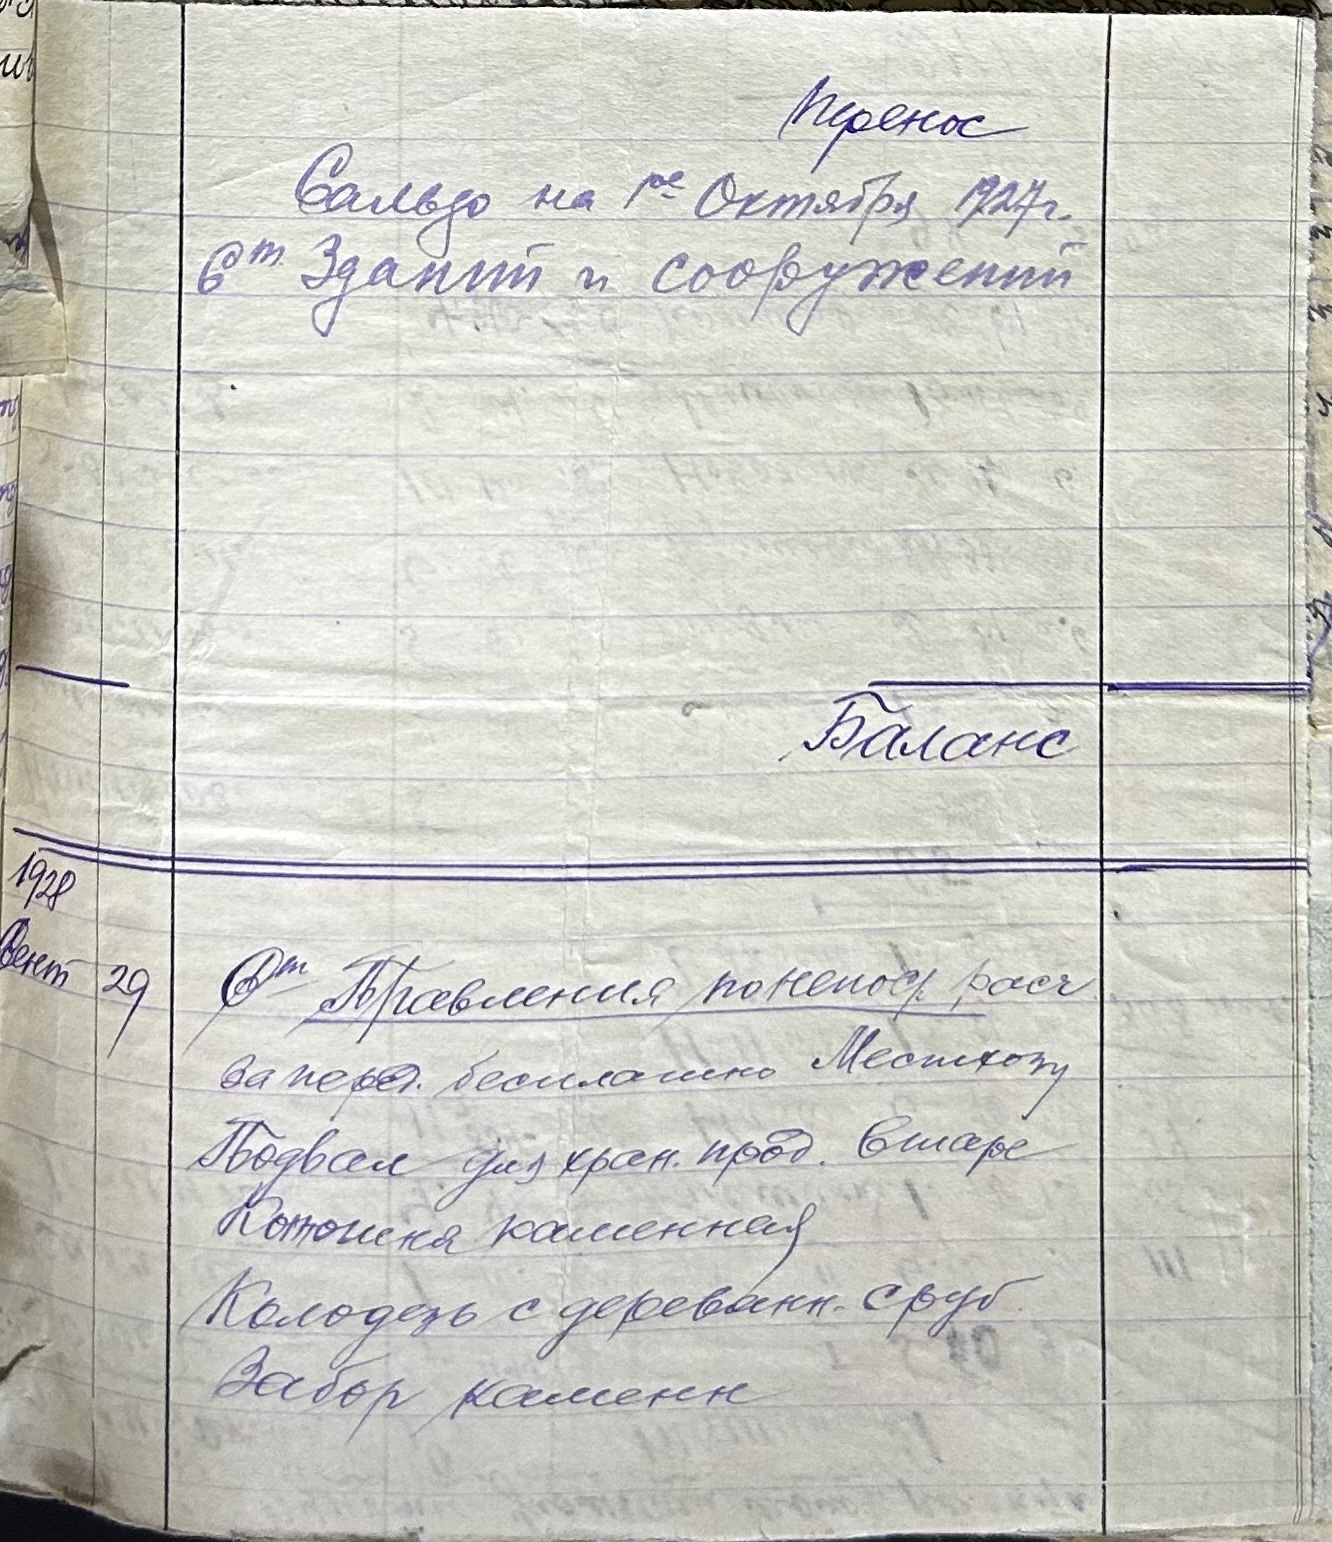 Перенос
Сальдо на 1ое Октября 1927 г.
Ст. Зданий и сооружений
Баланс
1928
Сент 29 Ст Правления по непоср. расч
за перед. бесплатно Местхозу
Подвал для хран. прод. в таре
Конюшня каменная
Колодезь с деревянн. сруб.
Забор каменн